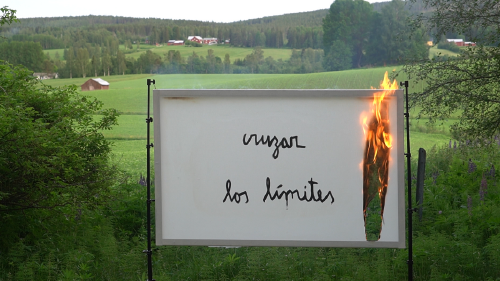 cruzar
los límites